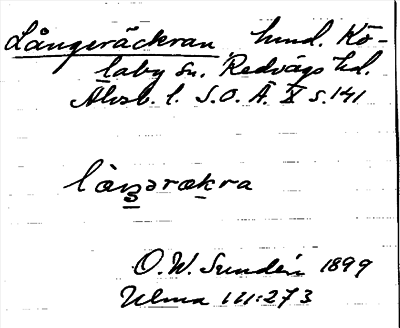 Långeräckran, hmd. Kö-
laby sn. Redvägs hd.
Älvsb. l. S.O.Ä. X s. 141
làŋərakra
O.W. Sundén 1899
Ulma 111:273